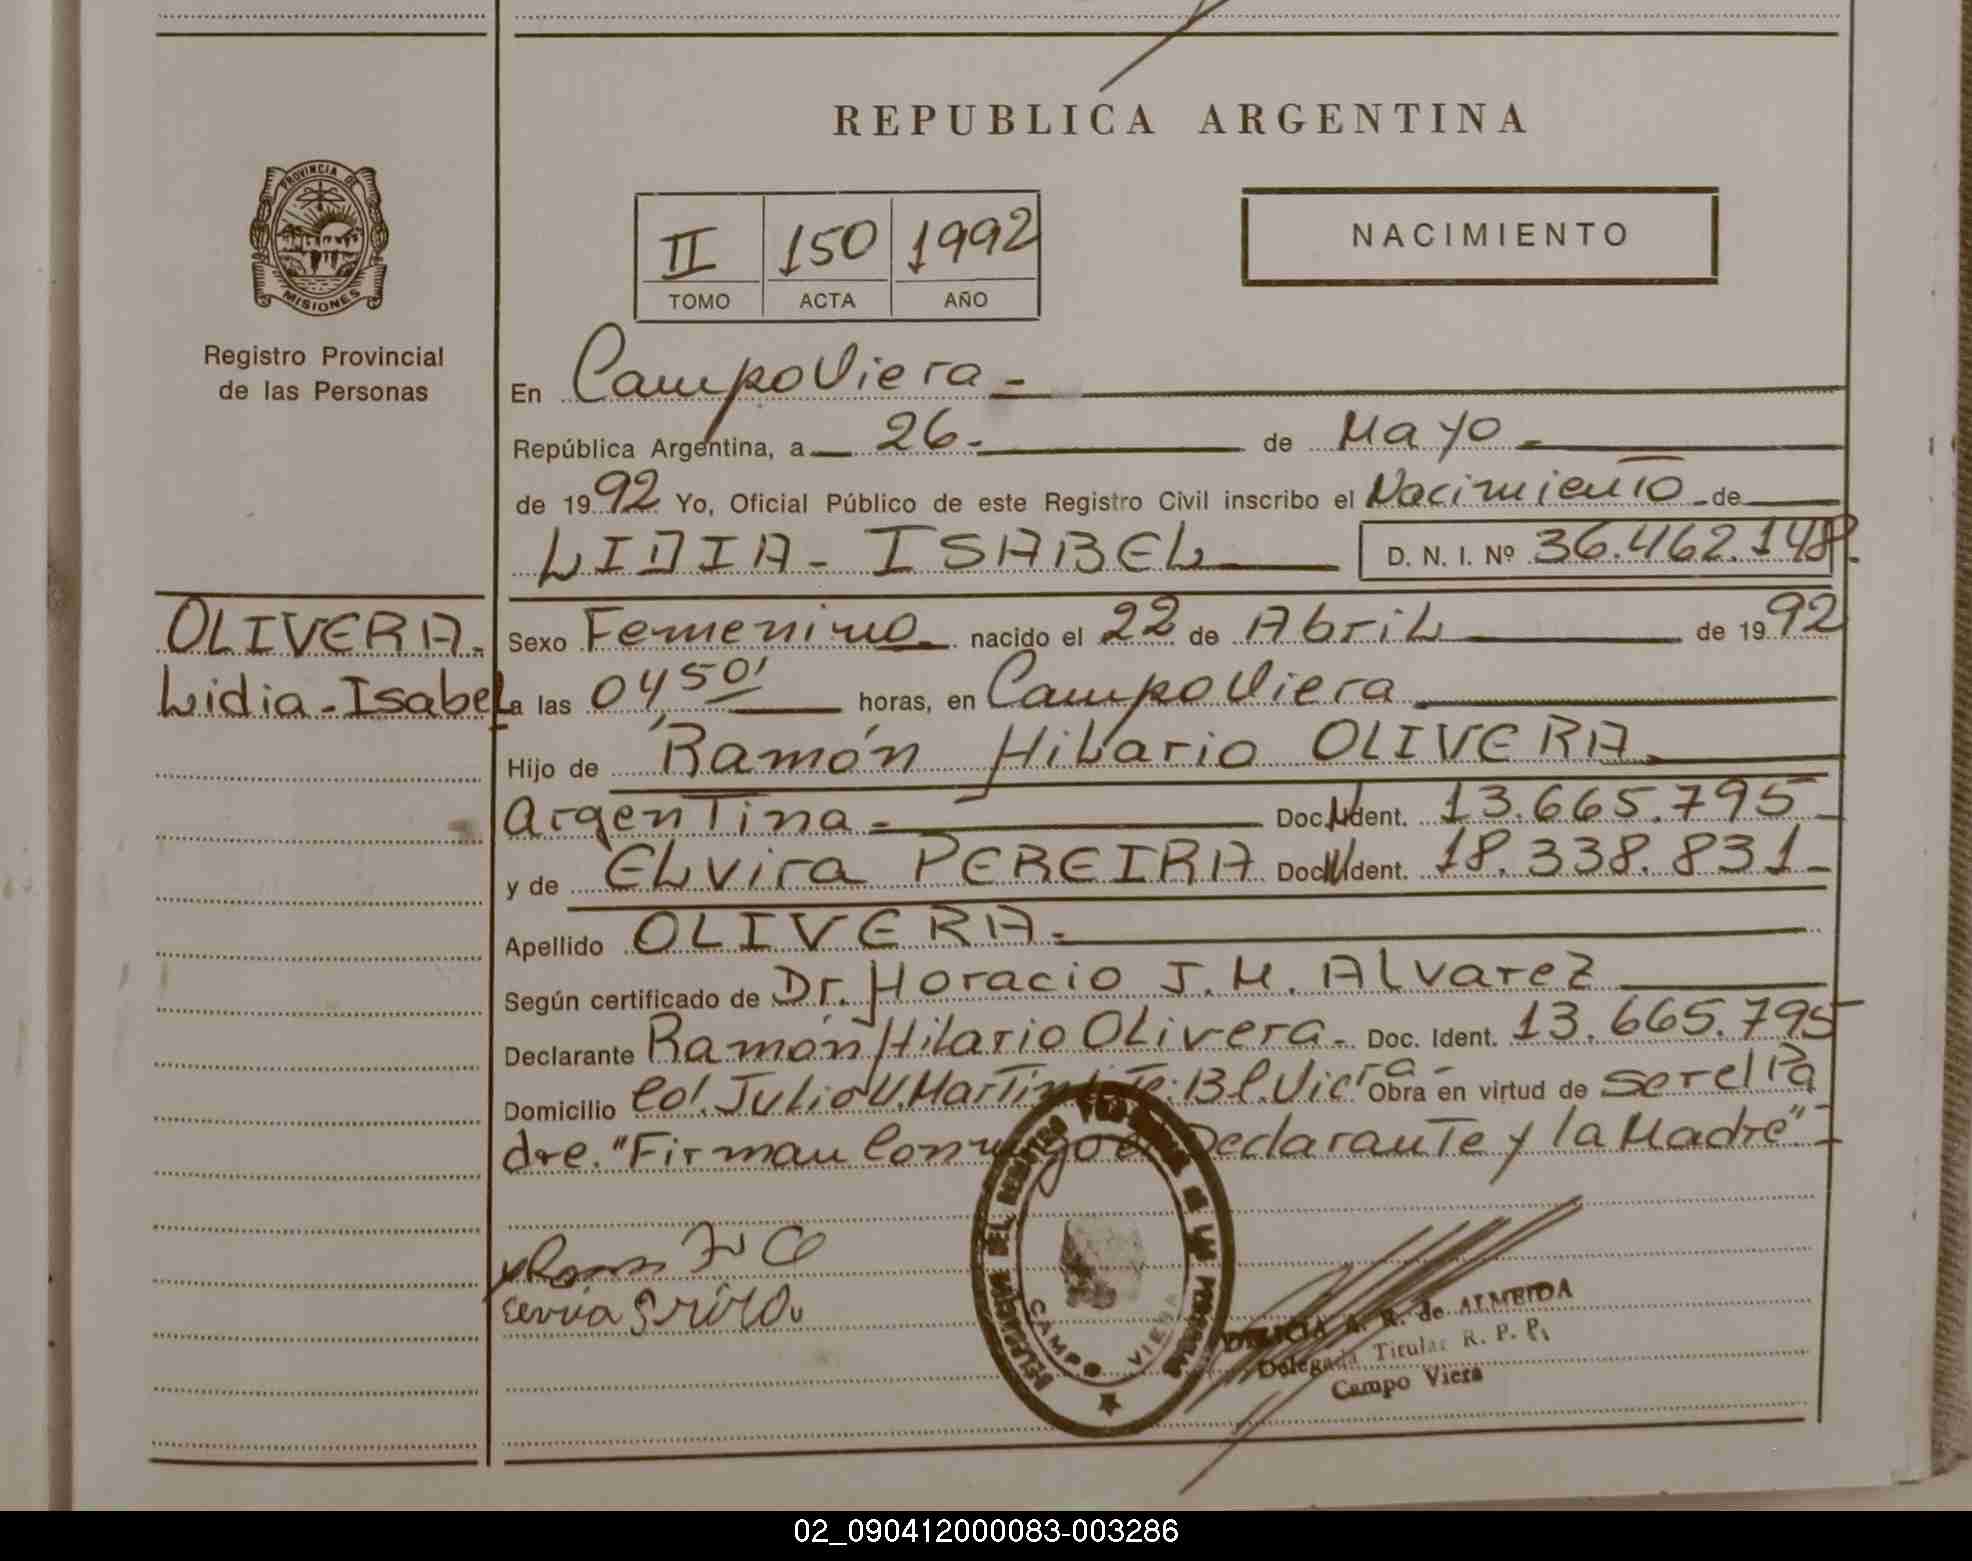 REPUBLICA ARGENTINA
PROVINCIA DE
MISIONES
Registro Provincial
de las Personas
II 150 1992
TOMO ACTA AÑO
NACIMIENTO
En Campo Viera -
República Argentina, a 26- de Mayo -
de 1992 Yo, Oficial Público de este Registro Civil inscribo el Nacimiento - de
LIDIA - ISABEL D. N. I. Nº 36.462.148.
OLIVERA -
Lidia - Isabel
Sexo Femenino - nacido el 22 de Abril de 1992
a las 04 50' horas, en Campo Viera
Hijo de Ramón Hilario OLIVERA -
Argentina - Doc. Ident. 13.665.795 -
y de Elvira PEREIRA Doc. Ident. 18.338.831 -
Apellido OLIVERA -
Según certificado de Dr. Horacio J. M. Alvarez
Declarante Ramón Hilario Olivera - Doc. Ident. 13.665.795
Domicilio Col. Julio U. Martin Viera - Obra en virtud de ser el Pa
dre. "Firman Conmigo el Declarante y la Madre" -
CAMPO VIERA
A. R. de ALMEIDA
Delegada Titular R. P. P.
Campo Viera
02_090412000083-003286